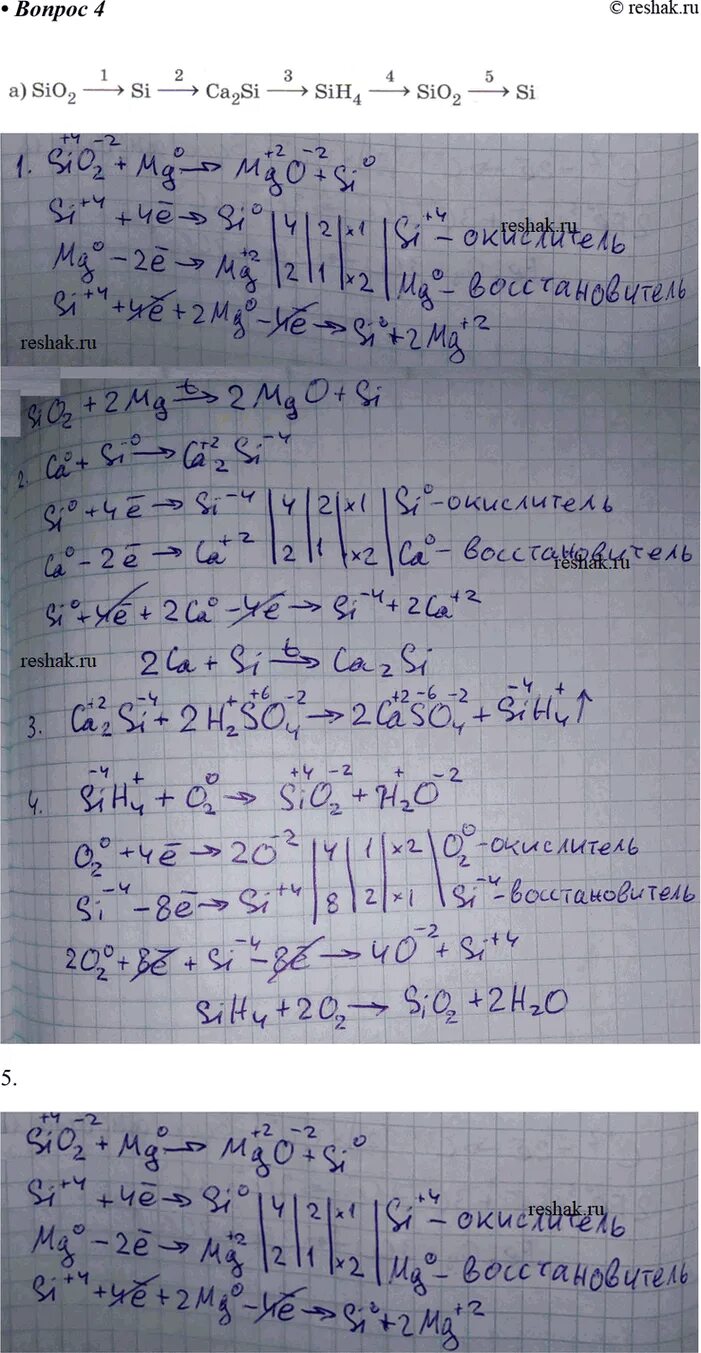 • Вопрос 4
© reshak.ru
а) SiO₂ —1→ Si —2→ Ca₂Si —3→ SiH₄ —4→ SiO₂ —5→ Si
1. Si⁺⁴O₂⁻² + Mg⁰ → Mg⁺²O⁻² + Si⁰
Si⁺⁴ + 4ē → Si⁰ | 4 | 2 | ×1 | Si⁺⁴ – окислитель
Mg⁰ – 2ē → Mg⁺² | 2 | 1 | ×2 | Mg⁰ – восстановитель
Si⁺⁴ + 4ē + 2Mg⁰ – 4ē → Si⁰ + 2Mg⁺²
reshak.ru
reshak.ru
SiO₂ + 2Mg —t→ 2MgO + Si
2. Ca⁰ + Si⁰ → Ca⁺²₂Si⁻⁴
Si⁰ + 4ē → Si⁻⁴ | 4 | 2 | ×1 | Si⁰ – окислитель
Ca⁰ – 2ē → Ca⁺² | 2 | 1 | ×2 | Ca⁰ – восстановитель
reshak.ru
Si⁰ + 4ē + 2Ca⁰ – 4ē → Si⁻⁴ + 2Ca⁺²
reshak.ru
2Ca + Si —t→ Ca₂Si
3. Ca⁺²₂Si⁻⁴ + 2H⁺₂S⁺⁶O⁻²₄ → 2Ca⁺²S⁻⁶O⁻²₄ + Si⁻⁴H⁺₄↑
4. Si⁻⁴H⁺₄ + O⁰₂ → Si⁺⁴O⁻²₂ + H⁺₂O⁻²
O₂⁰ + 4ē → 2O⁻² | 4 | 1 | ×2 | O₂⁰ – окислитель
Si⁻⁴ – 8ē → Si⁺⁴ | 8 | 2 | ×1 | Si⁻⁴ – восстановитель
2O₂⁰ + 8ē + Si⁻⁴ – 8ē → 4O⁻² + Si⁺⁴
SiH₄ + 2O₂ → SiO₂ + 2H₂O
5.
Si⁺⁴O₂⁻² + Mg⁰ → Mg⁺²O⁻² + Si⁰
Si⁺⁴ + 4ē → Si⁰ | 4 | 2 | ×1 | Si⁺⁴ – окислитель
Mg⁰ – 2ē → Mg⁺² | 2 | 1 | ×2 | Mg⁰ – восстановитель
Si⁺⁴ + 4ē + 2Mg⁰ – 4ē → Si⁰ + 2Mg⁺²
reshak.ru